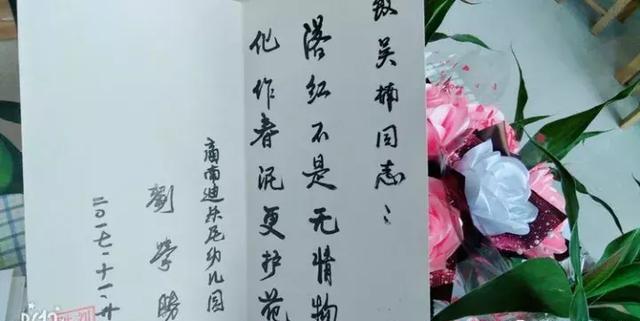 致吴楠同志：
落红不是无情物
化作春泥更护花
商南迪苏尼幼儿园
刘学勝
二〇一七·十一·廿